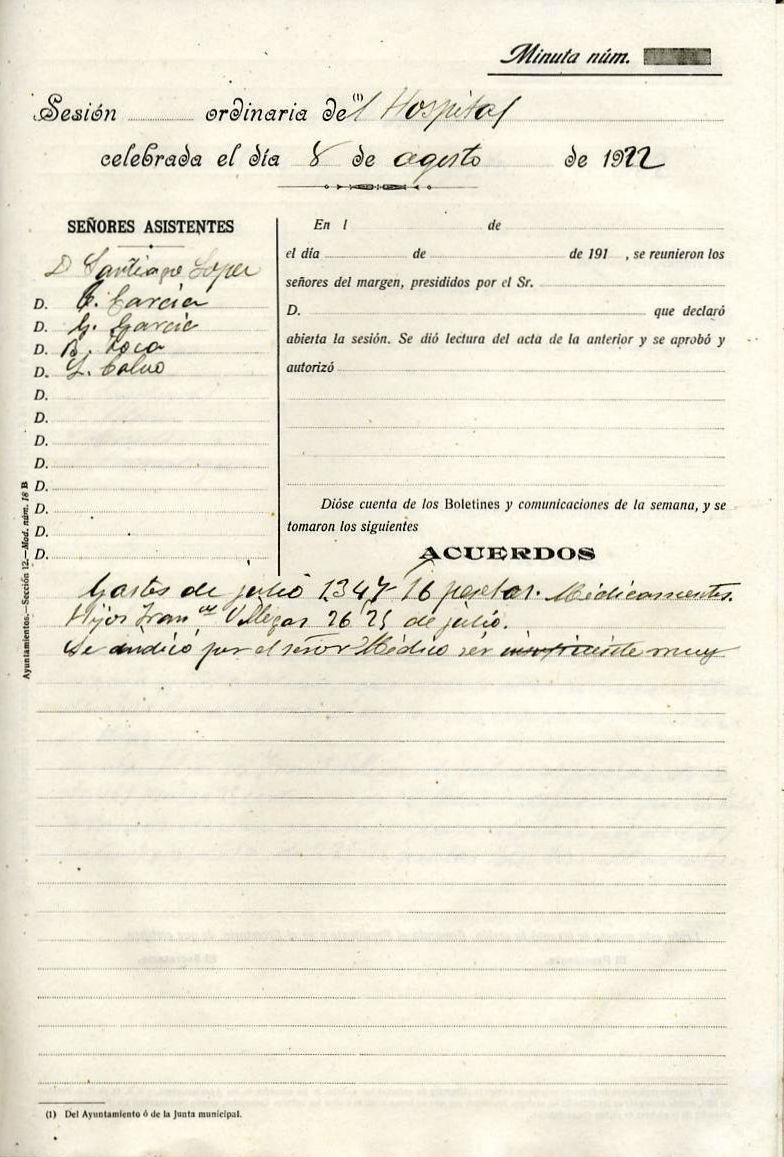 Minuta núm.
Sesión ordinaria de(1)l Hospital
celebrada el día 8 de agosto de 1922
SEÑORES ASISTENTES
D Santiago Lopez
D. C. García
D. G. García
D. B. Roca
D. L. Calvo
D.
D.
D.
D.
D.
D.
D.
D.
En l de
el día de de 191 , se reunieron los
señores del margen, presididos por el Sr.
D. que declaró
abierta la sesión. Se dió lectura del acta de la anterior y se aprobó y
autorizó
Dióse cuenta de los Boletines y comunicaciones de la semana, y se
tomaron los siguientes
ACUERDOS
Gastos de julio 1.347 16 pesetas. Médicamentos.
Hijos Franco Villegas 26 25 de julio.
Se indicó por el señor Médico ser insuficiente muy
Ayuntamientos.—Sección 12.—Mod. núm. 18 B
(1) Del Ayuntamiento ó de la Junta municipal.